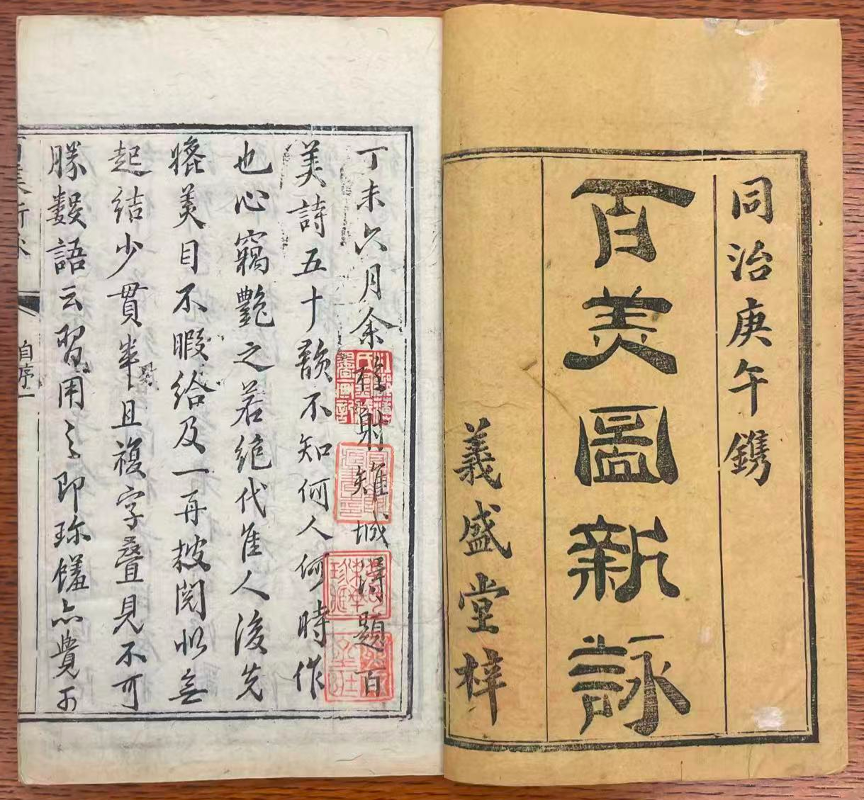 同治庚午鐫
百美圖新詠
義盛堂梓
丁未六月余在射雉城得題百
美詩五十韻不知何人何時作
也心竊艷之若絶代佳人後先
瑰美目不暇給及一再披閱似無
起結少貫串且複字叠見不可
勝數語云習用之即珍饈亦費可
自序一